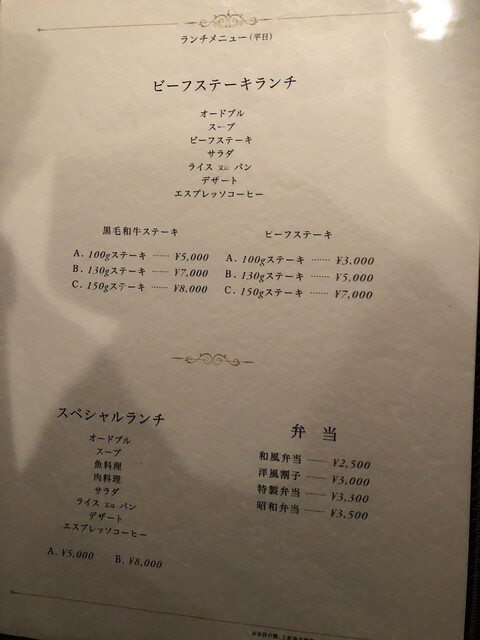 ランチメニュー(平日)
ビーフステーキランチ
オードブル
スープ
ビーフステーキ
サラダ
ライス 又は パン
デザート
エスプレッソコーヒー
黒毛和牛ステーキ
A. 100gステーキ ……… ¥5,000
B. 130gステーキ ……… ¥7,000
C. 150gステーキ ……… ¥8,000
ビーフステーキ
A. 100gステーキ ……… ¥3,000
B. 130gステーキ ……… ¥5,000
C. 150gステーキ ……… ¥7,000
スペシャルランチ
オードブル
スープ
魚料理
肉料理
サラダ
ライス 又は パン
デザート
エスプレッソコーヒー
A. ¥5,000 B. ¥8,000
弁当
和風弁当 ……… ¥2,500
洋風割子 ……… ¥3,000
特製弁当 ……… ¥3,300
昭和弁当 ……… ¥3,500